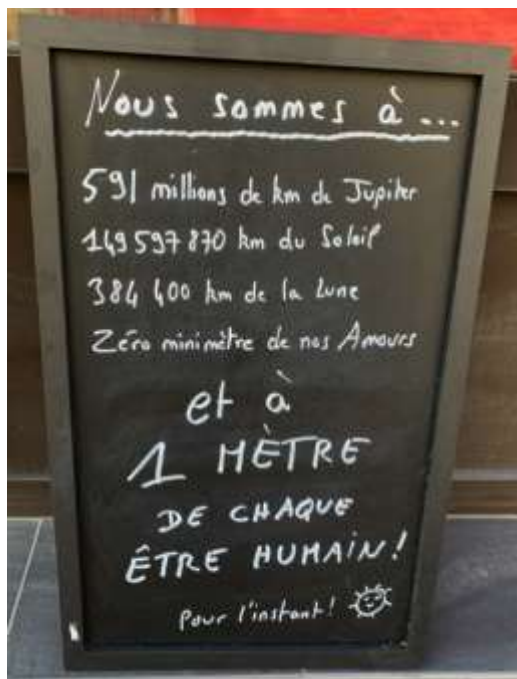 Nous sommes à ...
591 millions de km de Jupiter
149 597 870 km du Soleil
384 400 km de la Lune
Zéro minimètre de nos Amours
et à
1 MÈTRE
DE CHAQUE
ÊTRE HUMAIN !
Pour l'instant !